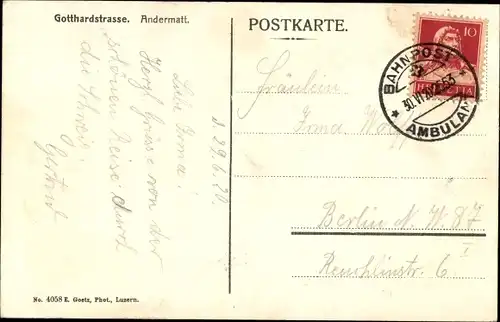 Gotthardstrasse. Andermatt.
POSTKARTE.
10
HELVETIA
BAHNPOST
30.VI.20
AMBULANT
d. 29.6.20
Liebe Irma!
Herzl. Grüsse von der
schönen Reise durch
die Schweiz
Gertrud
Fräulein
Irma
Berlin N.W. 87
Reuchlinstr. 6
I
No. 4058 E. Goetz, Phot., Luzern.